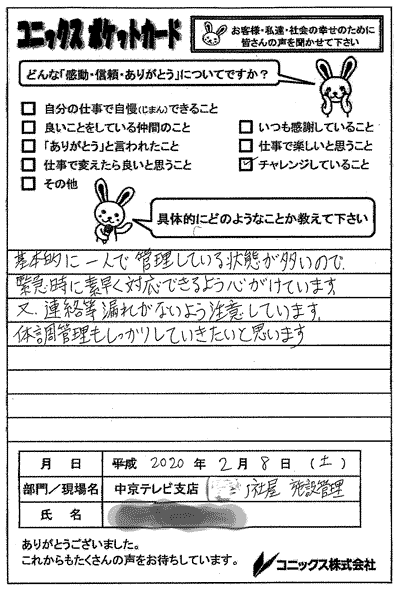 コニックス ポケットカード
お客様・私達・社会の幸せのために
皆さんの声を聞かせて下さい
どんな「感動・信頼・ありがとう」についてですか？
自分の仕事で自慢(じまん)できること
良いことをしている仲間のこと
いつも感謝していること
「ありがとう」と言われたこと
仕事で楽しいと思うこと
仕事で変えたら良いと思うこと
チャレンジしていること
その他
具体的にどのようなことか教えて下さい
基本的に一人で管理している状態が多いので、
緊急時に素早く対応できるよう心がけています。
又、連絡等漏れがないよう注意しています。
体調管理もしっかりしていきたいと思います
月 日 平成 2020 年 2 月 8 日 (土)
部門／現場名 中京テレビ支店 社屋 施設管理
氏 名
ありがとうございました。
これからもたくさんの声をお待ちしています。
コニックス株式会社